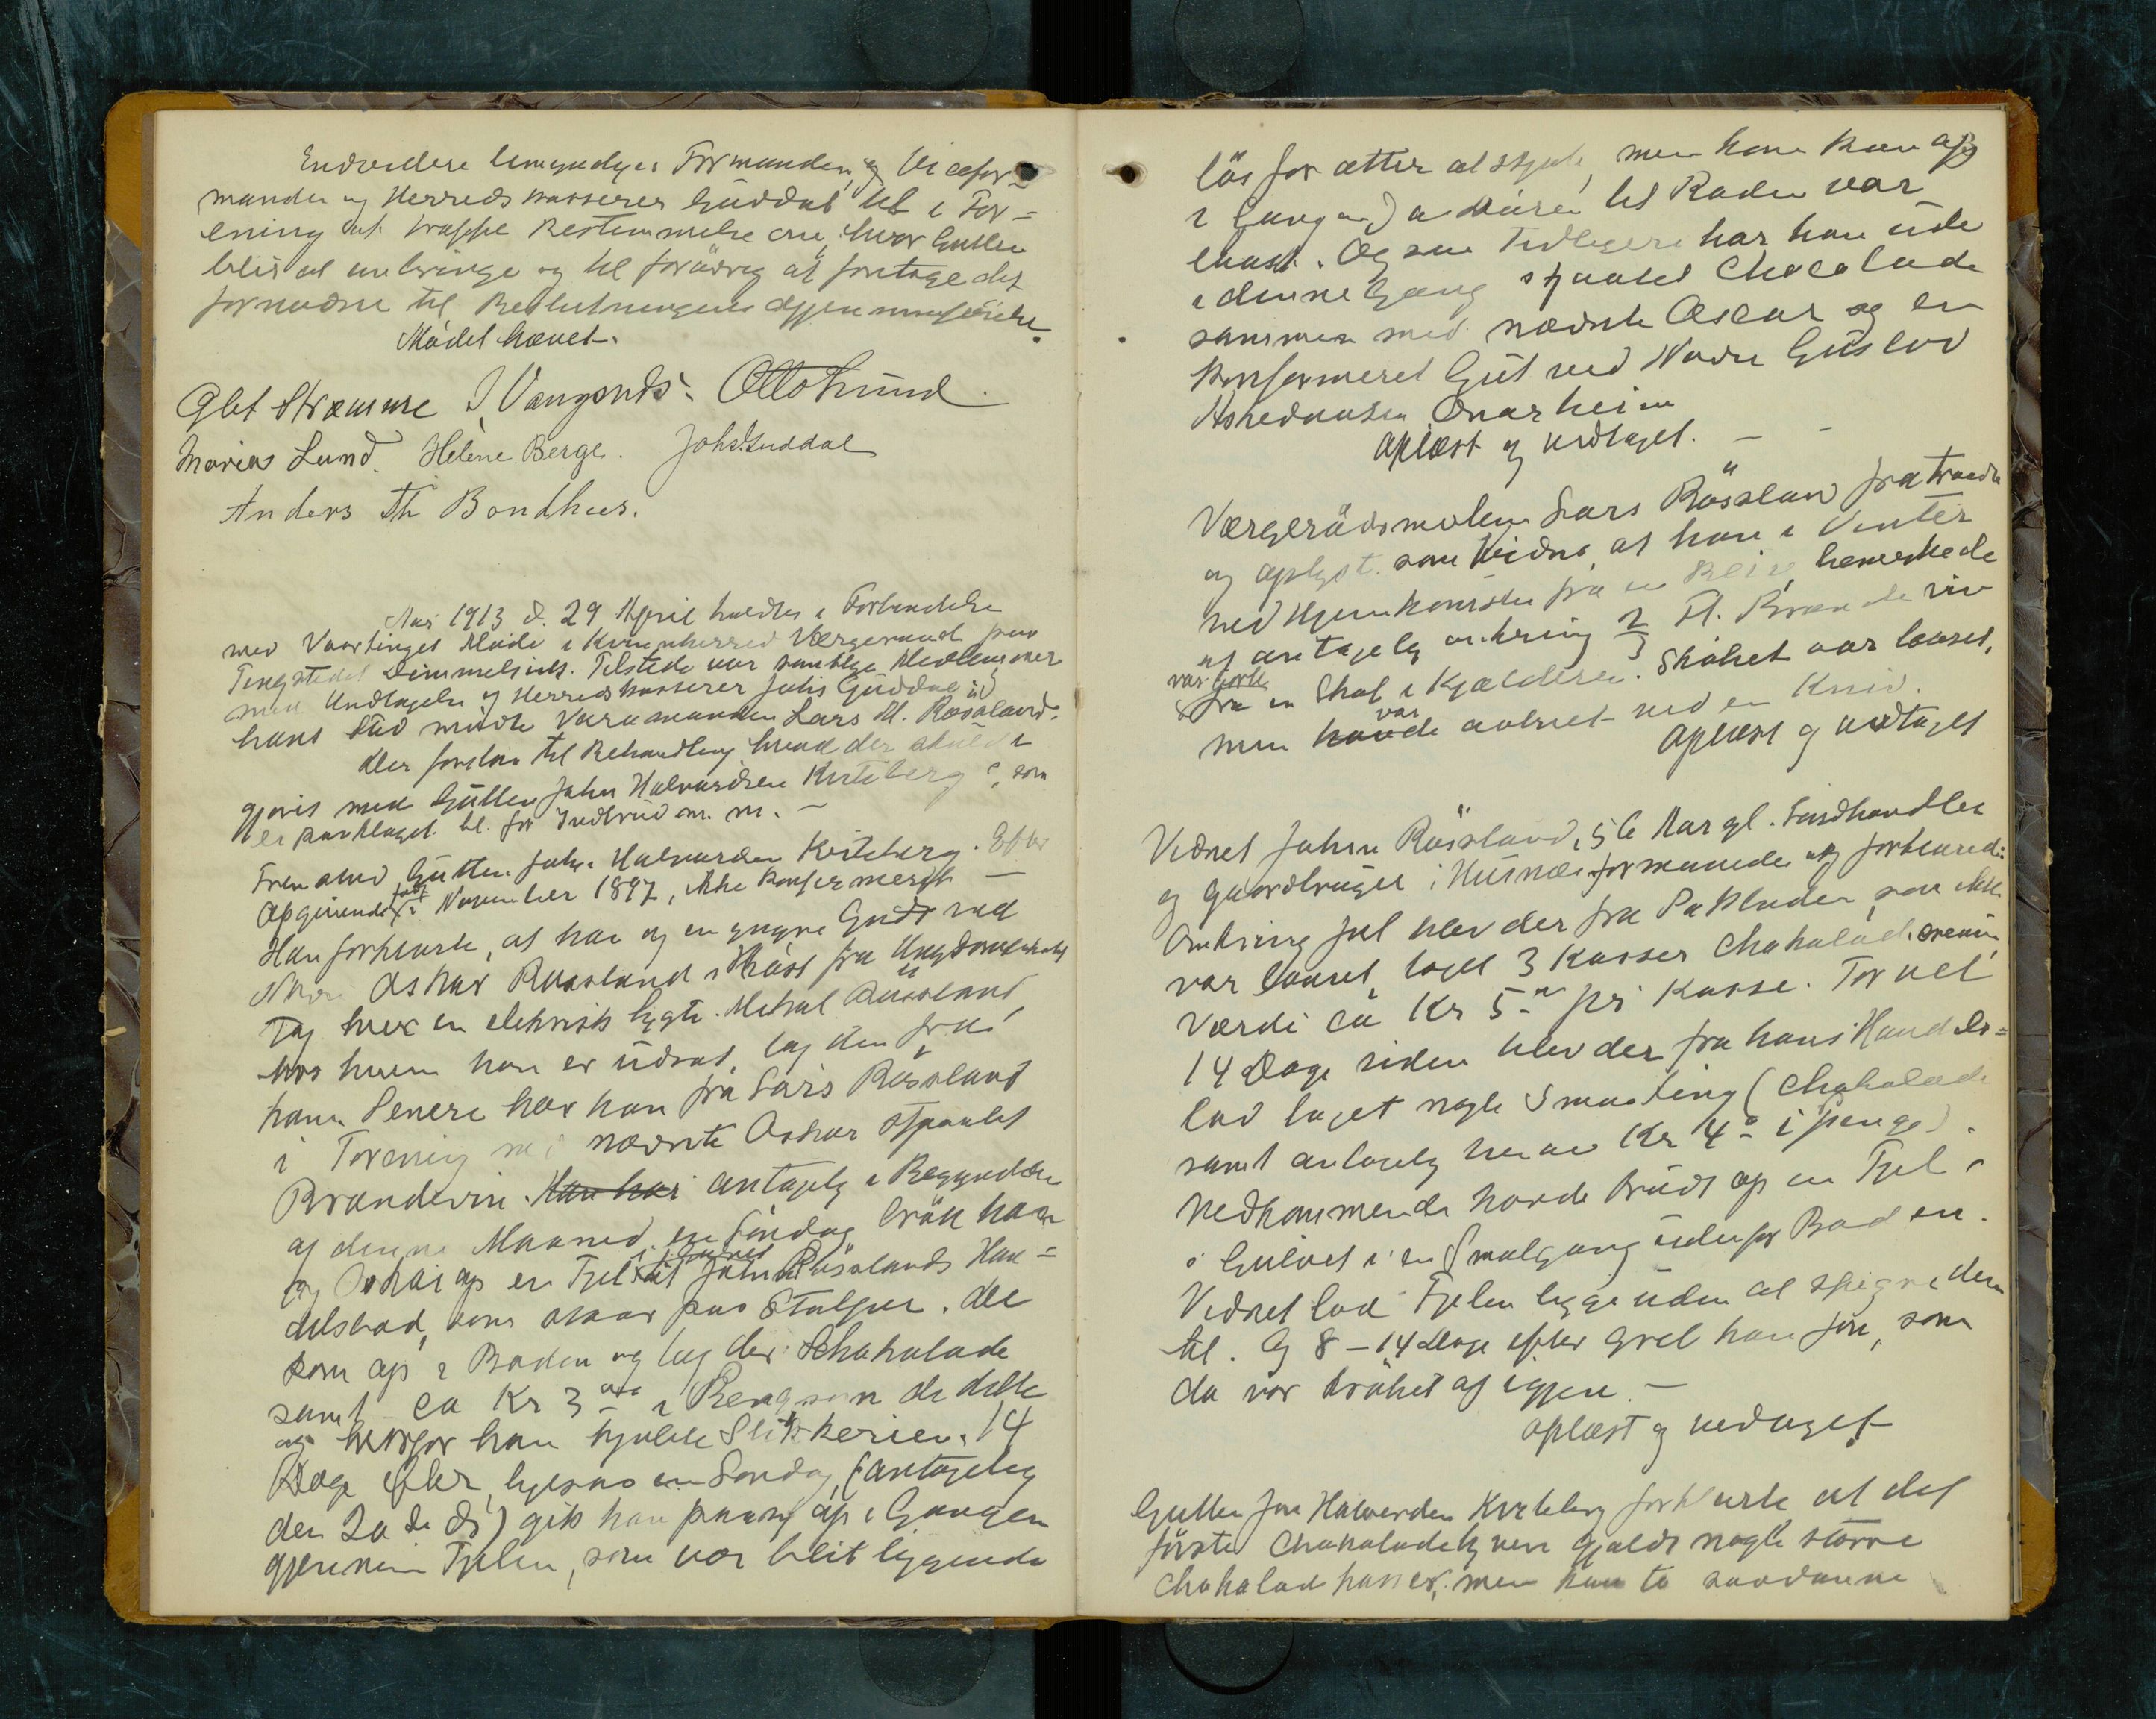 Endvidere bemyndiges Formanden, og Vicefor-
manden og Herredskasserer Guddal til i For-
ening at træffe Bestemmelse om, hvor Gutten
blir at anbringe og til forøvrig at foretage det
fornødne til Beslutningens Gjennemførelse.
Mødet hævet.
Glet Strømme J. Vangsnds. Otto Lund.
Marius Lund. Helene Berge. Johs. Guddal
Anders Th Bondhus.
Aar 1913 d. 29 April holdtes i Forbindelse
med Vaartinget Møde i Kvinnherred Værgeraad paa
Tingstedet Dimmelsvik. Tilstede var samtlige Medlemmer
med Undtagelse af Herredskasserer Johs Guddal i
hans Sted mødte Varamanden Lars M. Røsland.
Der forelaa til Behandling hvad der skulde
gjøris med Gutten John Halvardsen Kirkeberg, som
er paaklaget bl. for Indbrud m. m. —
Fremstod Gutten John Halvardsen Kirkeberg. Efter
Opgivende født i November 1897, ikke konfirmeret —
Han forklarte, at han og en yngre Gut ved
Navn Oskar Røssland i Høst fra Ungdomslokalet
Tog hver en elektrisk Lygte. Mikal Røssland
hos hvem han er udsat, tog den fra
ham Senere har han fra Lars Røssland
i Forening med nævnte Oskar stjaalet
Brændevin. Han har antagelig i Begyndelsen
af denne Maaned en Søndag brøt han
og Oskar op en Fjel i Gulvet i John Røsslands Han-
delsbod, som staar paa Stolper. De
kom op i Boden og tog der Chokolade
samt ca Kr 3 i Penge som de delte
og hvorfor han kjøbte Slikkerier. 14
Dage efter, ligesaa en Søndag, (antagelig
den 20 de ds) gik han paany op i Gangen
gjennem Fjelen, som var blit liggende
løs for atter at stjæle, men han kom op
i Gangen) da Døren til Boden var
laast. Ogsaa Tidligere har han ude
i denne Gang stjaalet Chocolade
sammen med nævnte Oscar og en
konfirmeret Gut ved Navn Gustav
Askedausen Ønarheim
Oplæst og vedtaget. —
Værgeraadsmedlem Lars Røssland fratraadte
og oplyst som Vidne, at han i Vinter
ved Hjemkomsten fra en Reise bemerkede
at antagelig omkring 2/3 Fl. Brændevin
var borte
fra en Skab i Kjælderen. Skabet var laaset,
men havde var aabnet ved en Kniv.
Oplæst og vedtaget
Vidnet John Røssland, 56 Aar gl. Landhandler
og Gaardbruger i Husnes formanede og forklarede:
Omkring Jul blev der fra Pakboden, som ikke
var laaset, taget 3 Kasser Chokolade
Værdi ca Kr 5.- pr Kasse. For vel
14 Dage siden blev der fra hans Handels-
bod taget nogle Smaating (Chokolade
samt antagelig henved Kr 4 - i penge).
Vedkommende havde brudt op en Fjel
i Gulvet i en Smalgang udenfor Boden.
Vidnet lod Fjelen ligge uden at spigre den
til. Og 8 – 14 Dage efter
da var brøket op igjen. —
Oplæst og vedtaget
Gutten Jon Halvorden Kirkeberg forklarte at det
første Chokoladetyveri gjaldt nogle større
chokoladkasser, men han to saadanne